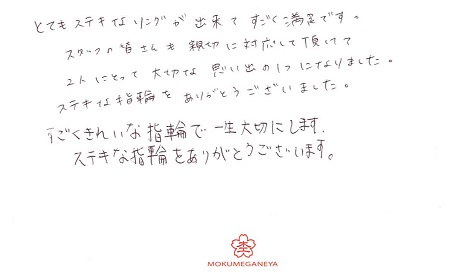 とてもステキなリングが出来てすごく満足です。
スタッフの皆さんも親切に対応して頂けて
2人にとって大切な思い出の1つになりました。
ステキな指輪をありがとうございました。
すごくきれいな指輪で一生大切にします.
ステキな指輪をありがとうございます。
MOKUMEGANEYA